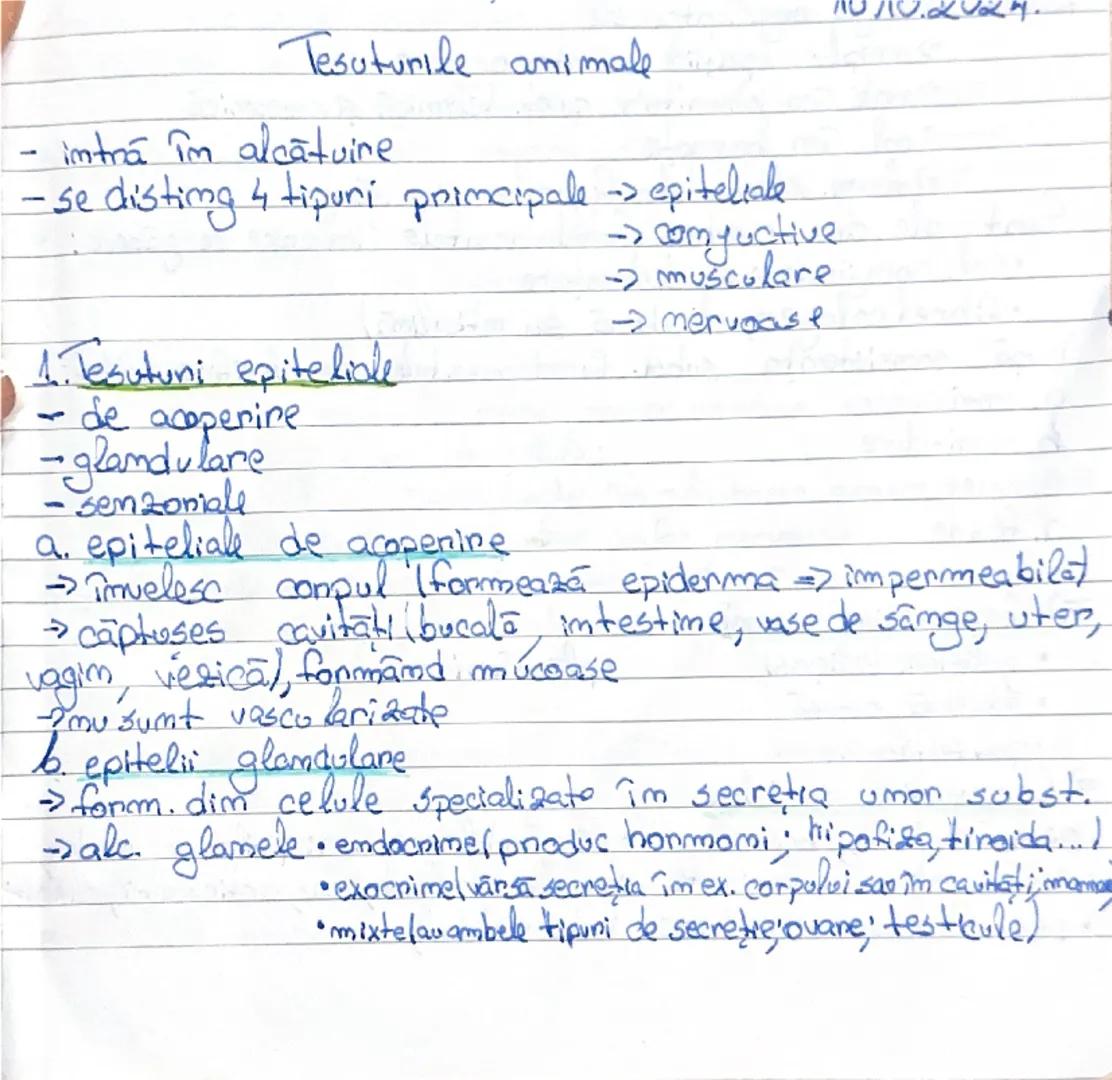 10.10.2024.
Tesuturile animale
- intră în alcătuire
- se disting 4 tipuri principale -> epiteliale
-> conjuctive
-> musculare
-> nervoase
1. Tesuturi epiteliale
- de acoperire
- glandulare
- senzoriale
a. epiteliale de acoperire
-> învelesc corpul (formează epiderma => impermeabilă)
-> căptușes cavități (bucală, intestine, vase de sânge, uter,
vagin, vezică), formând mucoase
-> nu sunt vascularizate
b. epitelii glandulare
-> form. din celule specializate în secreția unor subst.
-> alc. glanele • endocrine (produc hormoni; hipofiza, tiroida...)
• exocrine (varsă secreția în ex. corpului sau în cavități;
• mixte (au ambele tipuri de secreție; ovare; testicule)